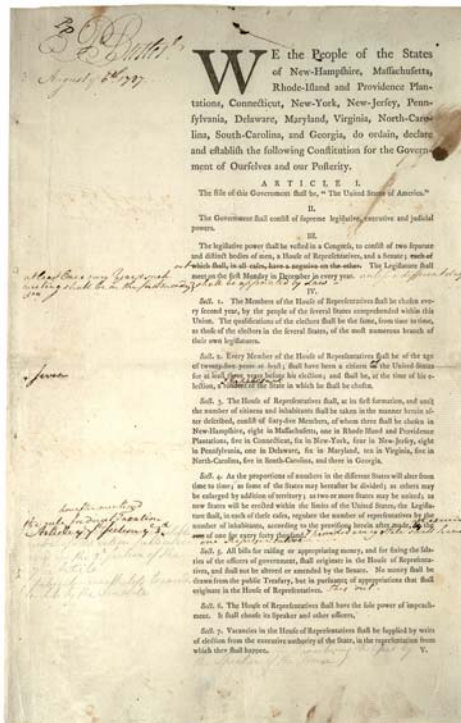 August 6th 1787
WE the People of the States
of New-Hampshire, Massachusetts,
Rhode-Island and Providence Plan-
tations, Connecticut, New-York, New-Jersey, Penn-
sylvania, Delaware, Maryland, Virginia, North-Caro-
lina, South-Carolina, and Georgia, do ordain, declare
and establish the following Constitution for the Govern-
ment of Ourselves and our Posterity.
ARTICLE I.
The stile of this Government shall be, "The United States of America."
II.
The Government shall consist of supreme legislative, executive and judicial
powers.
III.
The legislative power shall be vested in a Congress, to consist of two separate
and distinct bodies of men, a House of Representatives, and a Senate; each of
which shall, in all cases, have a negative on the other. The Legislature shall
meet on the first Monday in December in every year.
shall be appointed by law
IV.
Sect. 1. The Members of the House of Representatives shall be chosen every
every second year, by the people of the several States comprehended within this
Union. The qualifications of the electors shall be the same, from time to time,
as those of the electors in the several States, of the most numerous branch of
their own legislatures.
Sect. 2. Every Member of the House of Representatives shall be of the age
of twenty-five years at least; shall have been a citizen the United States
seven
for at least three years before his election; and shall be, at the time of his e-
lection, resident of the State in which he shall be chosen.
Sect. 3. The House of Representatives shall, at its first formation, and until
the number of citizens and inhabitants shall be taken in the manner herein af-
ter described, consist of sixty-five Members, of whom three shall be chosen in
New-Hampshire, eight in Massachusetts, one in Rhode-Island and Providence
Plantations, five in Connecticut, six in New-York, four in New-Jersey, eight
in Pennsylvania, one in Delaware, six in Maryland, ten in Virginia, five in
North-Carolina, five in South-Carolina, and three in Georgia.
Sect. 4. As the proportions of numbers in the different States will alter from
time to time; as some of the States may hereafter be divided; as others may
be enlarged by addition of territory; as two or more States may be united; as
new States will be erected within the limits of the United States, the Legisla-
ture shall, in each of these cases, regulate the number of representatives by the
number of inhabitants, according to the provisions herein after made,
of one for every forty thousand.
Sect. 5. All bills for raising or appropriating money, and for fixing the sala-
ries of the officers of government, shall originate in the House of Representa-
tives, and shall not be altered or amended by the Senate. No money shall be
drawn from the public Treasury, but in pursuance of appropriations that shall
originate in the House of Representatives.
Sect. 6. The House of Representatives shall have the sole power of impeach-
ment. It shall choose its Speaker and other officers.
Sect. 7. Vacancies in the House of Representatives shall be supplied by writs
of election from the executive authority of the State, in the representation from
which they shall happen.
V.